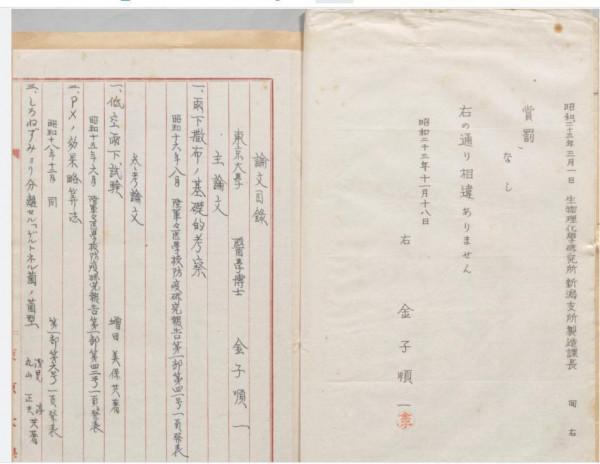 昭和二十三年三月一日　生物理化學研究所　新潟支所製造課長　同右
賞罰
なし
右の通り相違ありません
昭和二十三年十一月十八日
右　金子順一
論文目録
東京大學　醫學博士　金子順一
主論文
一、雨下撒布ノ基礎的考察
昭和十六年八月　陸軍々医學校防疫研究報告第一部第四一号一頁発表
参考論文
一、低空雨下試験　増田美保共著
昭和十五年六月　陸軍々医學校防疫研究報告第一部第四二号一頁発表
二、PXノ効果略算法
昭和十八年十二月　同　第一部第六号一頁発表
三、しろねずみヨリ分離セル「ゲルトネル菌」ノ菌型　淳　丸山正夫　共著